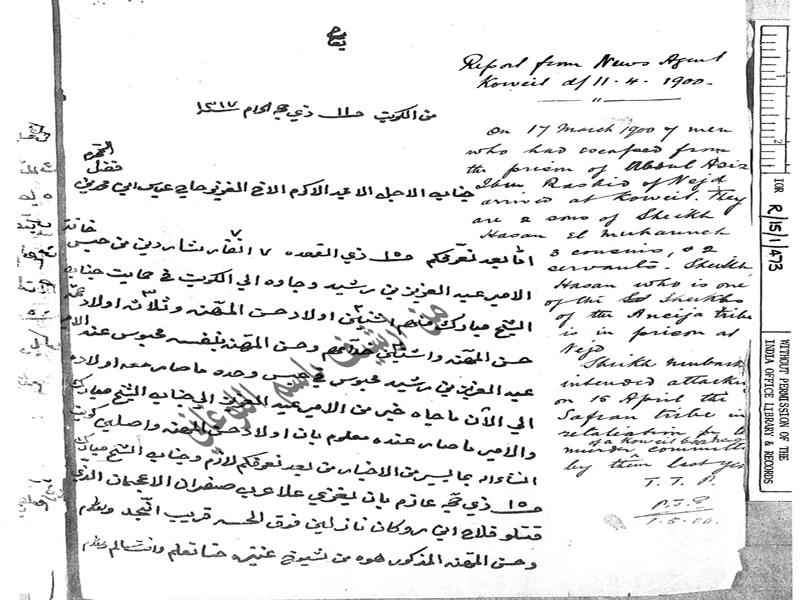 من الكويت ١١ ذي حجة الحرام سنة ١٣١٧
جناب الاجل الامجد الاكرم الافخم العزيز حاجي عباس ابن محمد بن
فضل المحترم
اما بعد نعرفكم ١٥ ذي القعده ٧ انفار شاردين من حبس
الامير عبد العزيز بن رشيد وجاوه الى الكويت في حمايت جناب
الشيخ مبارك منهم اثنين اولاد حسن المهنه وثلاثه اولاد
حسن المهنه واثنين خدامهم وحسن المهنه بنفسه محبوس عند الامير
عبد العزيز بن رشيد محبوس في حبس وحده ما صار معه اولاده
الى الآن ما جاه خبر من الامير عبد العزيز الى جناب الشيخ مبارك
والامير ما صار عنده معلوم بان اولاد حسن المهنه واصلين كويت
انشاءالله بما يسر من الاخبار من بعد نعرفكم لازم وجناب الشيخ مبارك
١٥ ذي حجة عازم بان يغزي علا عرب صفران الاعجمان الذي
قتلو فلاح ابن روكان نازلين فوق الحسه قريب النجد
وحسن المهنه المذكور هوه من شيوخ عنيزه حتا تعلم والسلام
Report from News Agent
Koweit d/ 11.4.1900.
On 17 March 1900 7 men
who had escaped from
the prison of Abdul Aziz
Ibn Rashid of Nejd
arrived at Koweit. They
are 2 sons of Sheikh
Hasan El Muhanneh
3 cousins, & 2
servants. Sheikh
Hasan who is one
of the Sheikhs
of the Aneija tribe
is in prison at
Nejd
Sheikh Mubarak
intended attacking
on 15 April the
Safran tribe in
retaliation for
of a Koweit
murder committed
by them last year
T. T. P.
1.5.00.
من ارشيف باسم اللوغاني
IOR R/15/1/473
WITHOUT PERMISSION OF THE
INDIA OFFICE LIBRARY & RECORDS
2